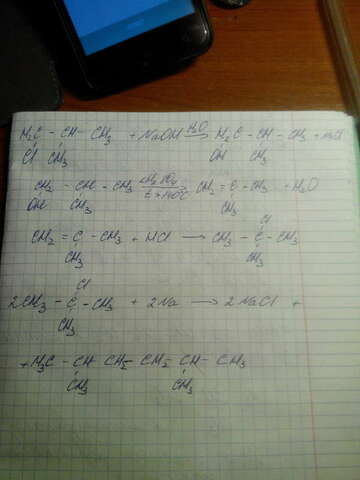 H₂C – CH – CH₃ + NaOH H₂O→ H₂C – CH – CH₃ + NaCl
Cl CH₃ OH CH₃
CH₂ – CH – CH₃ H₂SO₄ t>140°C→ CH₂ = C – CH₃ + H₂O
OH CH₃ CH₃
Cl
CH₂ = C – CH₃ + HCl → CH₃ – C – CH₃
CH₃ CH₃
Cl
2CH₃ – C – CH₃ + 2Na → 2NaCl +
CH₃
+ H₃C – CH CH₂ – CH₂ – CH – CH₃
CH₃ CH₃